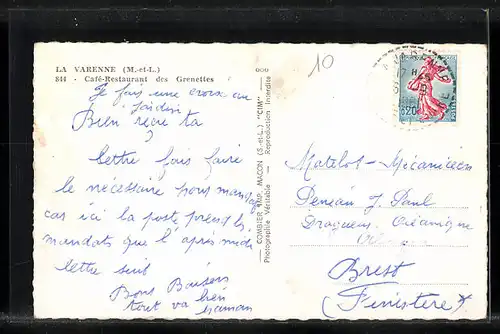 LA VARENNE (M.-et-L.)
844 - Café-Restaurant des Grenettes
Je fais une croix au
jardin
Bien reçu ta
lettre fais faire
le nécessaire pour mandat
car ici la poste prend les
mandats que l'après midi
lettre suit
Bons Baisers
tout va bien
maman
COMBIER IMP. MACON (S.-et-L.) "CIM"
Photographie Véritable - Reproduction Interdite
10
0,20
POSTES
Matelot-Mécanicien
J. Paul
Dragueur Océanique
Brest
(Finistère)